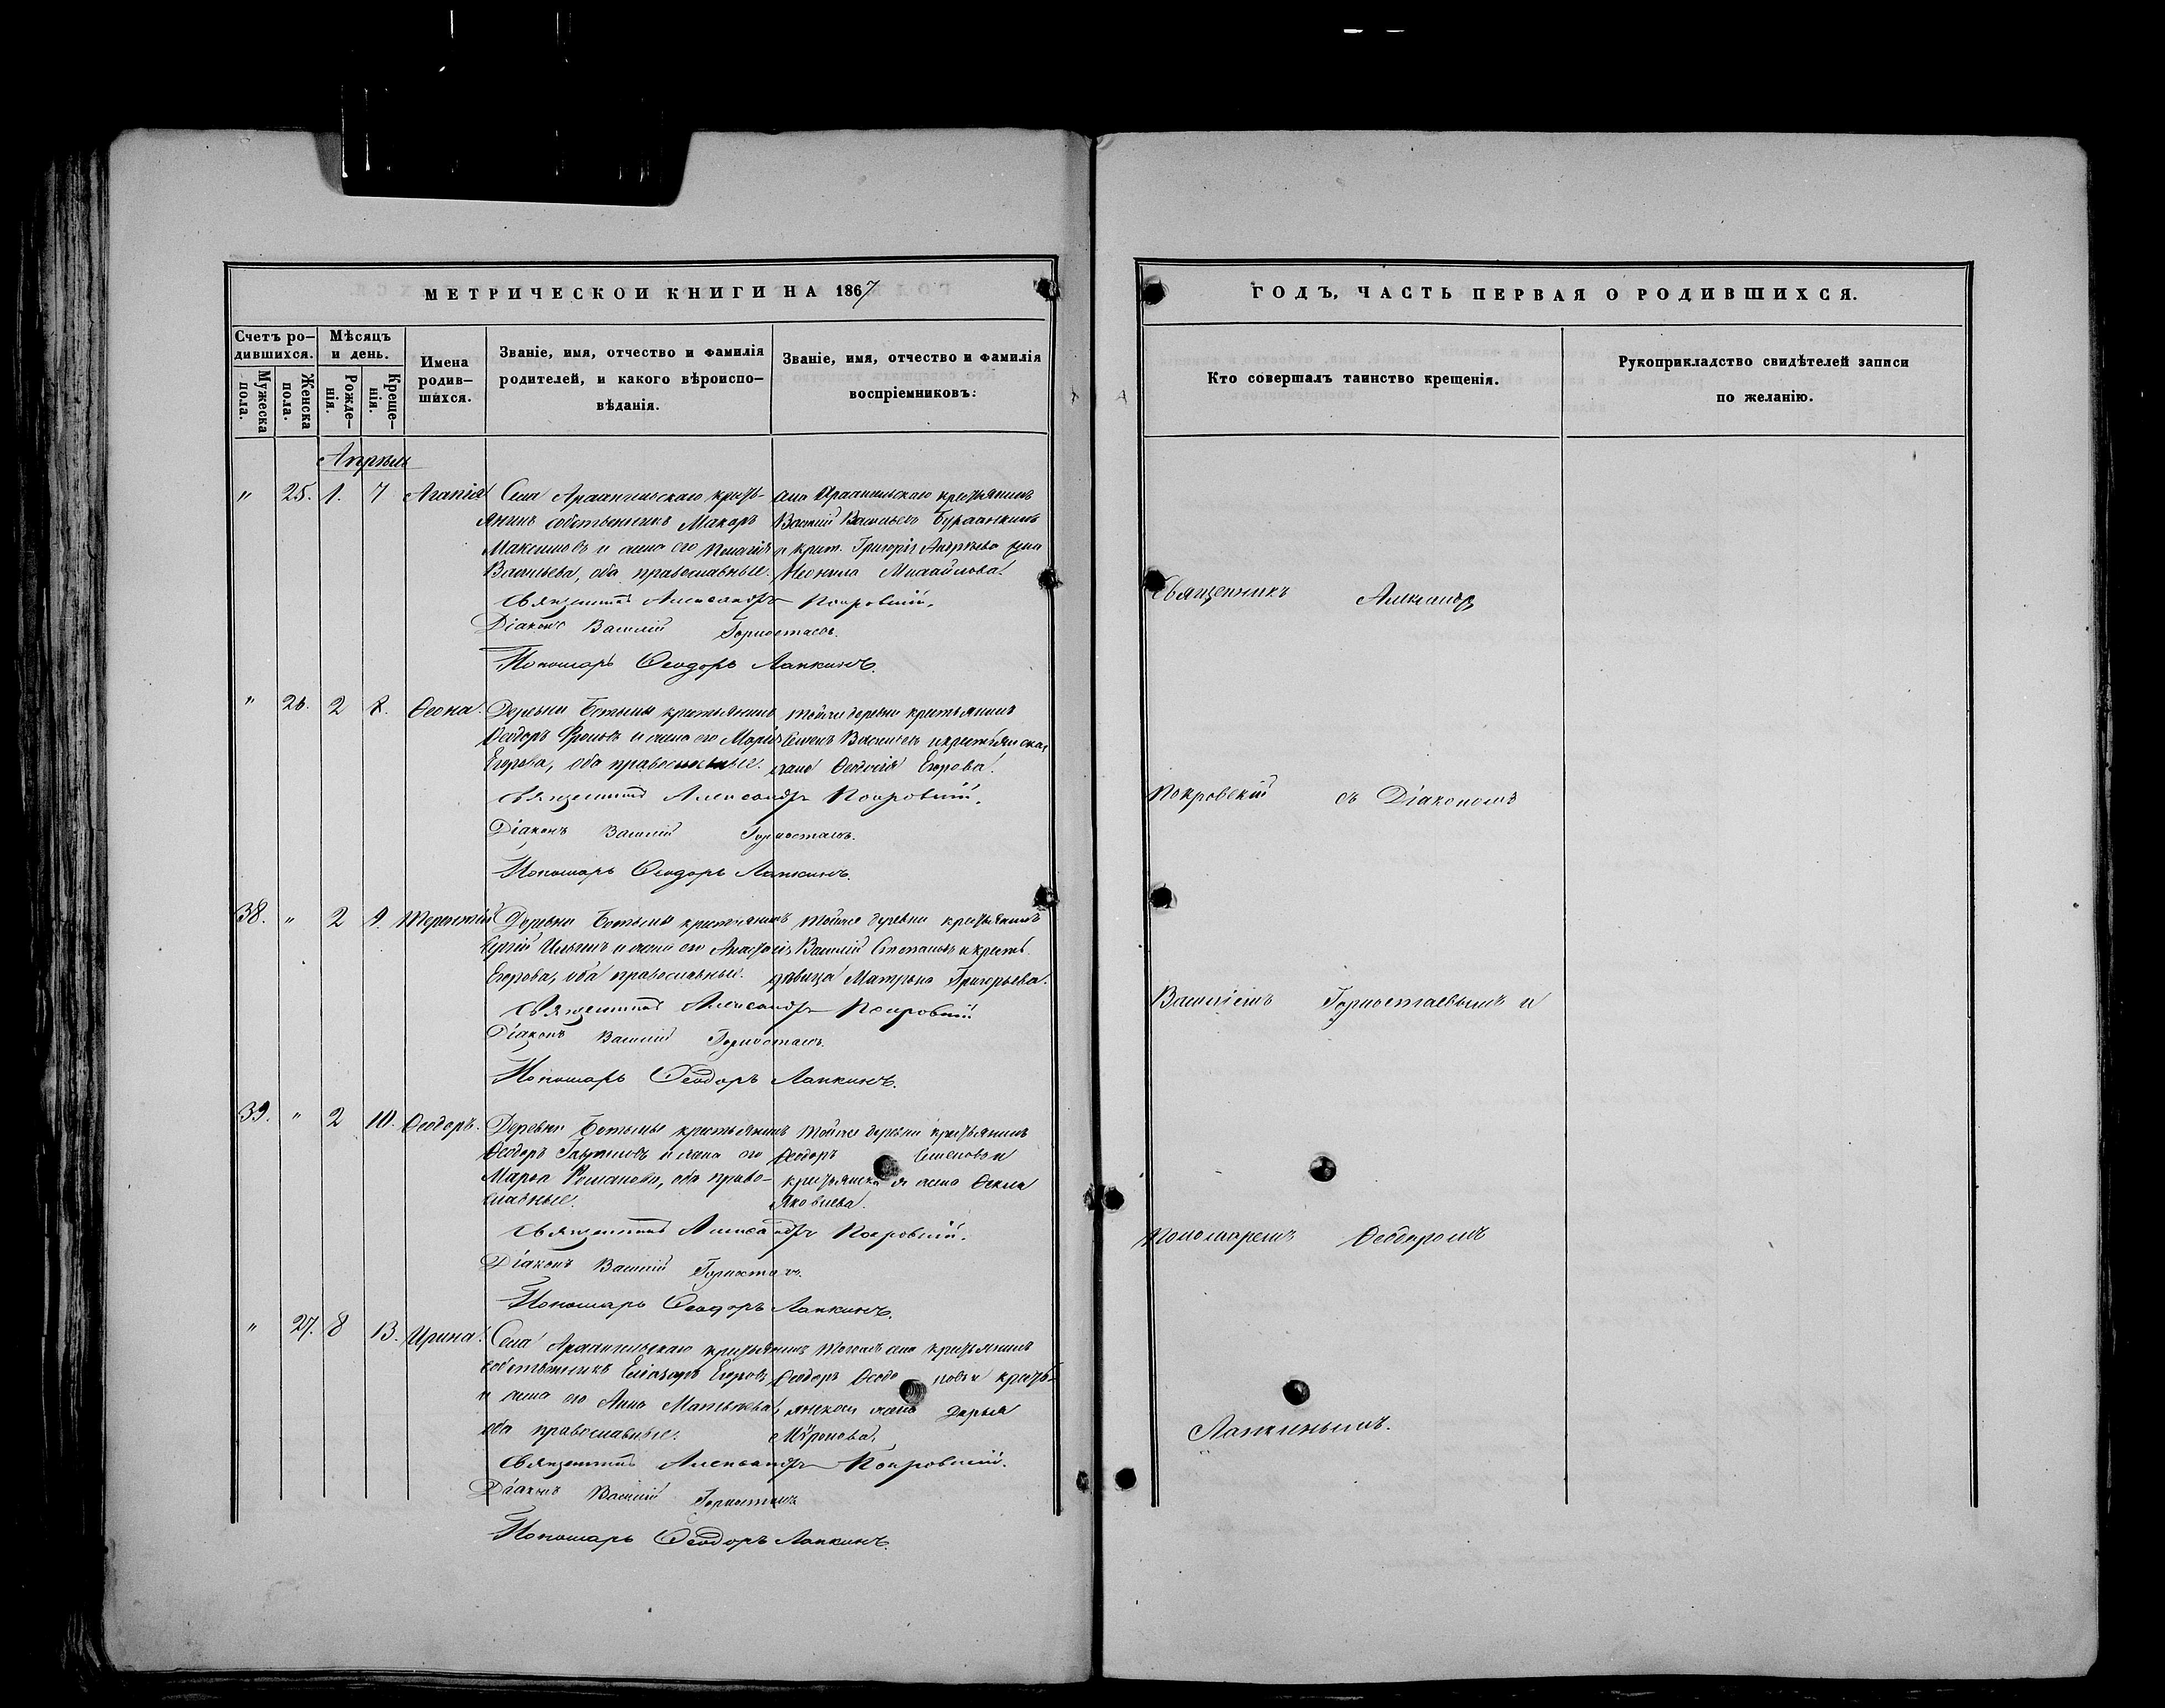 МЕТРИЧЕСКОЙ КНИГИ НА 1867
Счетъ ро-
дившихся.
Мѣсяцъ
и день.
Мужеска
пола.
Женска
пола.
Рожде-
нія.
Креще-
нія.
Имена
родив-
шихся.
Званіе, имя, отчество и фамилія
родителей, и какого вѣроиспо-
вѣданія.
Званіе, имя, отчество и фамилія
воспріемниковъ:
Апрѣль
" 25. 1. 7 Агапія
Села Архангельскаго кресть-
янинъ собственникъ Макаръ
Максимовъ и жена его Пелагія
Васильева, оба православные.
Архангельскаго крестьянинъ
Василій Васильевъ
и крест. Григорія Андреева жена
Неонила Михайлова.
Священникъ Александръ Покровскій.
Діаконъ Василій Горностаевъ.
Пономарь Ѳеодоръ Лапкинъ.
" 26. 2 8. Ѳеона.
Деревни крестьянинъ
Ѳеодоръ Фроловъ и жена его Марія
Егорова, оба православные.
Тойже деревни крестьянинъ
Семенъ Васильевъ и крестьянская
жена Ѳеодосія Егорова.
Священникъ Александръ Покровскій.
Діаконъ Василій Горностаевъ.
Пономарь Ѳеодоръ Лапкинъ.
38. " 2 9. Терентій
Деревни крестьянинъ
Сергій Ильинъ и жена его Анастасія
Егорова, оба православные.
Тойже деревни крестьянинъ
Василій Степановъ и крест.
дѣвица Матрона Григорьева.
Священникъ Александръ Покровскій
Діаконъ Василій Горностаевъ.
Пономарь Ѳеодоръ Лапкинъ.
39. " 2 10. Ѳеодоръ.
Деревни крестьянинъ
Ѳеодоръ Гавриловъ и жена его
Марья Романова, оба право-
славные.
Тойже деревни крестьянинъ
Ѳеодоръ Семеновъ и
крестьянская жена Ѳекла
Яковлева.
Священникъ Александръ Покровскій.
Діаконъ Василій Горностаевъ.
Пономарь Ѳеодоръ Лапкинъ.
" 27. 8 13. Ирина.
Села Архангельскаго крестьянинъ
собственникъ Еліазаръ Егоровъ
и жена его Анна Матвѣева,
оба православные.
Тогожъ села крестьянинъ
Ѳеодоръ и кресть-
янская жена Дарья
Мѵронова.
Священникъ Александръ Покровскій.
Діаконъ Василій Горностаевъ
Пономарь Ѳеодоръ Лапкинъ.
ГОДЪ, ЧАСТЬ ПЕРВАЯ О РОДИВШИХСЯ.
Кто совершалъ таинство крещенія.
Рукоприкладство свидѣтелей записи
по желанію.
Священникъ Александръ
Покровскій съ Діакономъ
Василіемъ Горностаевымъ и
Пономаремъ Ѳеодоромъ
Лапкинымъ.